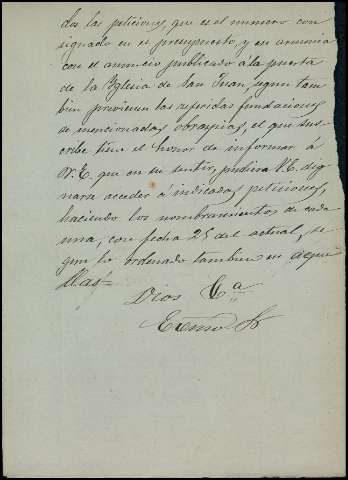 dos las peticiones, que es el número con
signado en el presupuesto, y en armonia
con el anuncio publicado á la puerta
de la Yglesia de San Juan, segun tam
bien previenen las referidas fundaciones
de mencionadas obraspias, el que sus
cribe tiene el honor de informar á
V. E. que en su sentir, pudiera V. E. dig
narse acceder á indicadas peticiones,
haciendo los nombramientos de cada
una, con fecha 25 del actual, se
gun lo ordenado tambien en aque
llas=
Dios &a
Exmo Sr